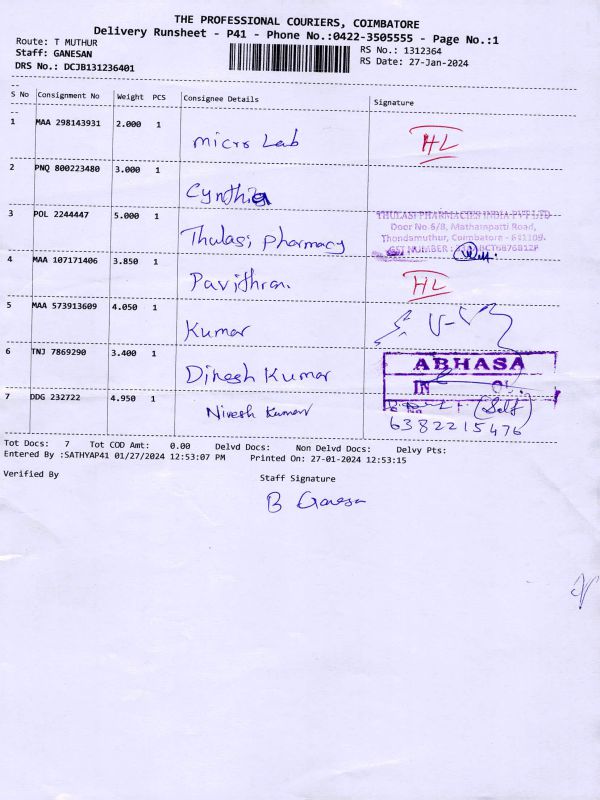 THE PROFESSIONAL COURIERS, COIMBATORE
Delivery Runsheet - P41 - Phone No.:0422-3505555 - Page No.:1
Route: T MUTHUR
Staff: GANESAN
DRS No.: DCJB131236401
RS No.: 1312364
RS Date: 27-Jan-2024
S No Consignment No Weight PCS Consignee Details Signature
1 MAA 298143931 2.000 1 micro Lab HL
2 PNQ 800223480 3.000 1 Cynthia
3 POL 2244447 5.000 1 Thulasi pharmacy
THULASI PHARMACIES INDIA PVT LTD
Door No.6/8, Mathampatti Road,
Thondamuthur, Coimbatore - 641109.
GST NUMBER :
4 MAA 107171406 3.850 1 Pavithran. HL
5 MAA 573913609 4.050 1 Kumar
6 TNJ 7869290 3.400 1 Dinesh Kumar
ABHASA
IN
7 DDG 232722 4.950 1 Nivesh Kumar (Self)
6382215476
Tot Docs: 7 Tot COD Amt: 0.00 Delvd Docs: Non Delvd Docs: Delvy Pts:
Entered By :SATHYAP41 01/27/2024 12:53:07 PM Printed On: 27-01-2024 12:53:15
Verified By Staff Signature
B Ganesan